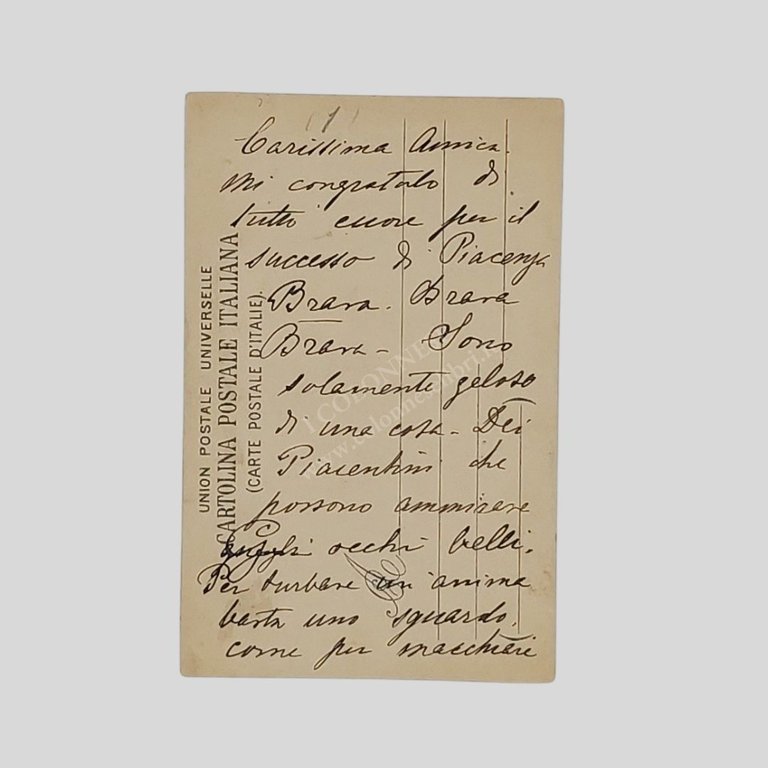 (1)
Carissima Amica.
Mi congratulo di
tutto cuore per il
successo di Piacenza
Brava. Brava
Brava - Sono
solamente geloso
di una cosa - Dei
Piacentini che
possono ammirare
quegli occhi belli.
Per turbare un'anima
basta uno sguardo,
come per macchiare
UNION POSTALE UNIVERSELLE
CARTOLINA POSTALE ITALIANA
(CARTE POSTALE D'ITALIE).